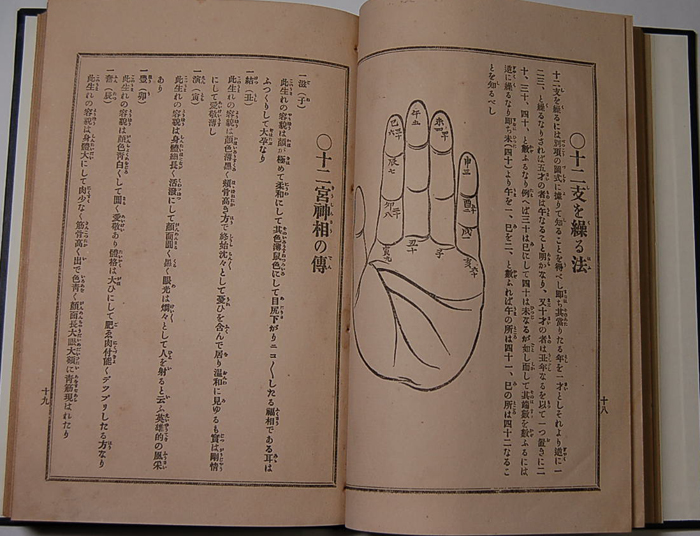 〇十二支を繰る法
十二支を繰るには別項の圖式に據りて知ることを得べし即ち其當りたる年を一才としそれより逆に一
二三、と繰るなりされば五才の者は午なること明かなり、又十才の者は丑年なるを以て一つ置きに二
十、三十、四十、と數ふるなり例へば三十は巳にして四十は未なるが如し而して其端數を數ふるには
逆に繰るなり即ち未(四十)より午を一、巳を二、と數ふれば午の所は四十一、巳の所は四十二なるこ
とを知るべし
申三
酉二
戌一
亥六十
未四 四十
午五
子
巳六 三十
辰七
丑十
卯八 二十
寅九
十八
〇十二宮神相の傳
一滋(子)
此生れの容貌は顔が極めて柔和にして其色薄鼠色にして目尻下がりニコ〱したる福相である耳は
ふつくりして大形なり
一結(丑)
此生れの容貌は顔色薄黑く頰骨高き方で終始沈々として憂ひを含んで居り温和に見ゆるも實は剛情
にして愛敬薄し
一演(寅)
此生れの容貌は身體細長く活潑にして顔面圓く黑く眼光は爛々として人を射ると云ふ英雄的の風采
あり
一豐(卯)
此生れの容貌は顔色靑白くして圓く愛敬あり體格は大ひにして肥ゑ肉付能くデツプリしたる方なり
一奮(辰)
此生れの容貌は身體大にして肉少なく筋骨高く出で色靑く顔面長大眼大額に靑筋現はれたり
十九